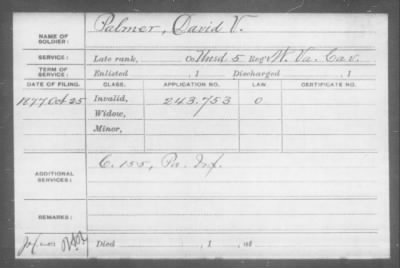 NAME OF SOLDIER: Palmer, David V.
SERVICE: Late rank, Co. Unas'd 5 Reg't W. Va. Cav.
TERM OF SERVICE: Enlisted , 1 Discharged , 1
DATE OF FILING. CLASS. APPLICATION NO. LAW CERTIFICATE NO.
1877 Oct 25 Invalid, 243.753 O
Widow,
Minor,
ADDITIONAL SERVICES: C. 155, Pa. Inf.
REMARKS:
Died , 1 , at